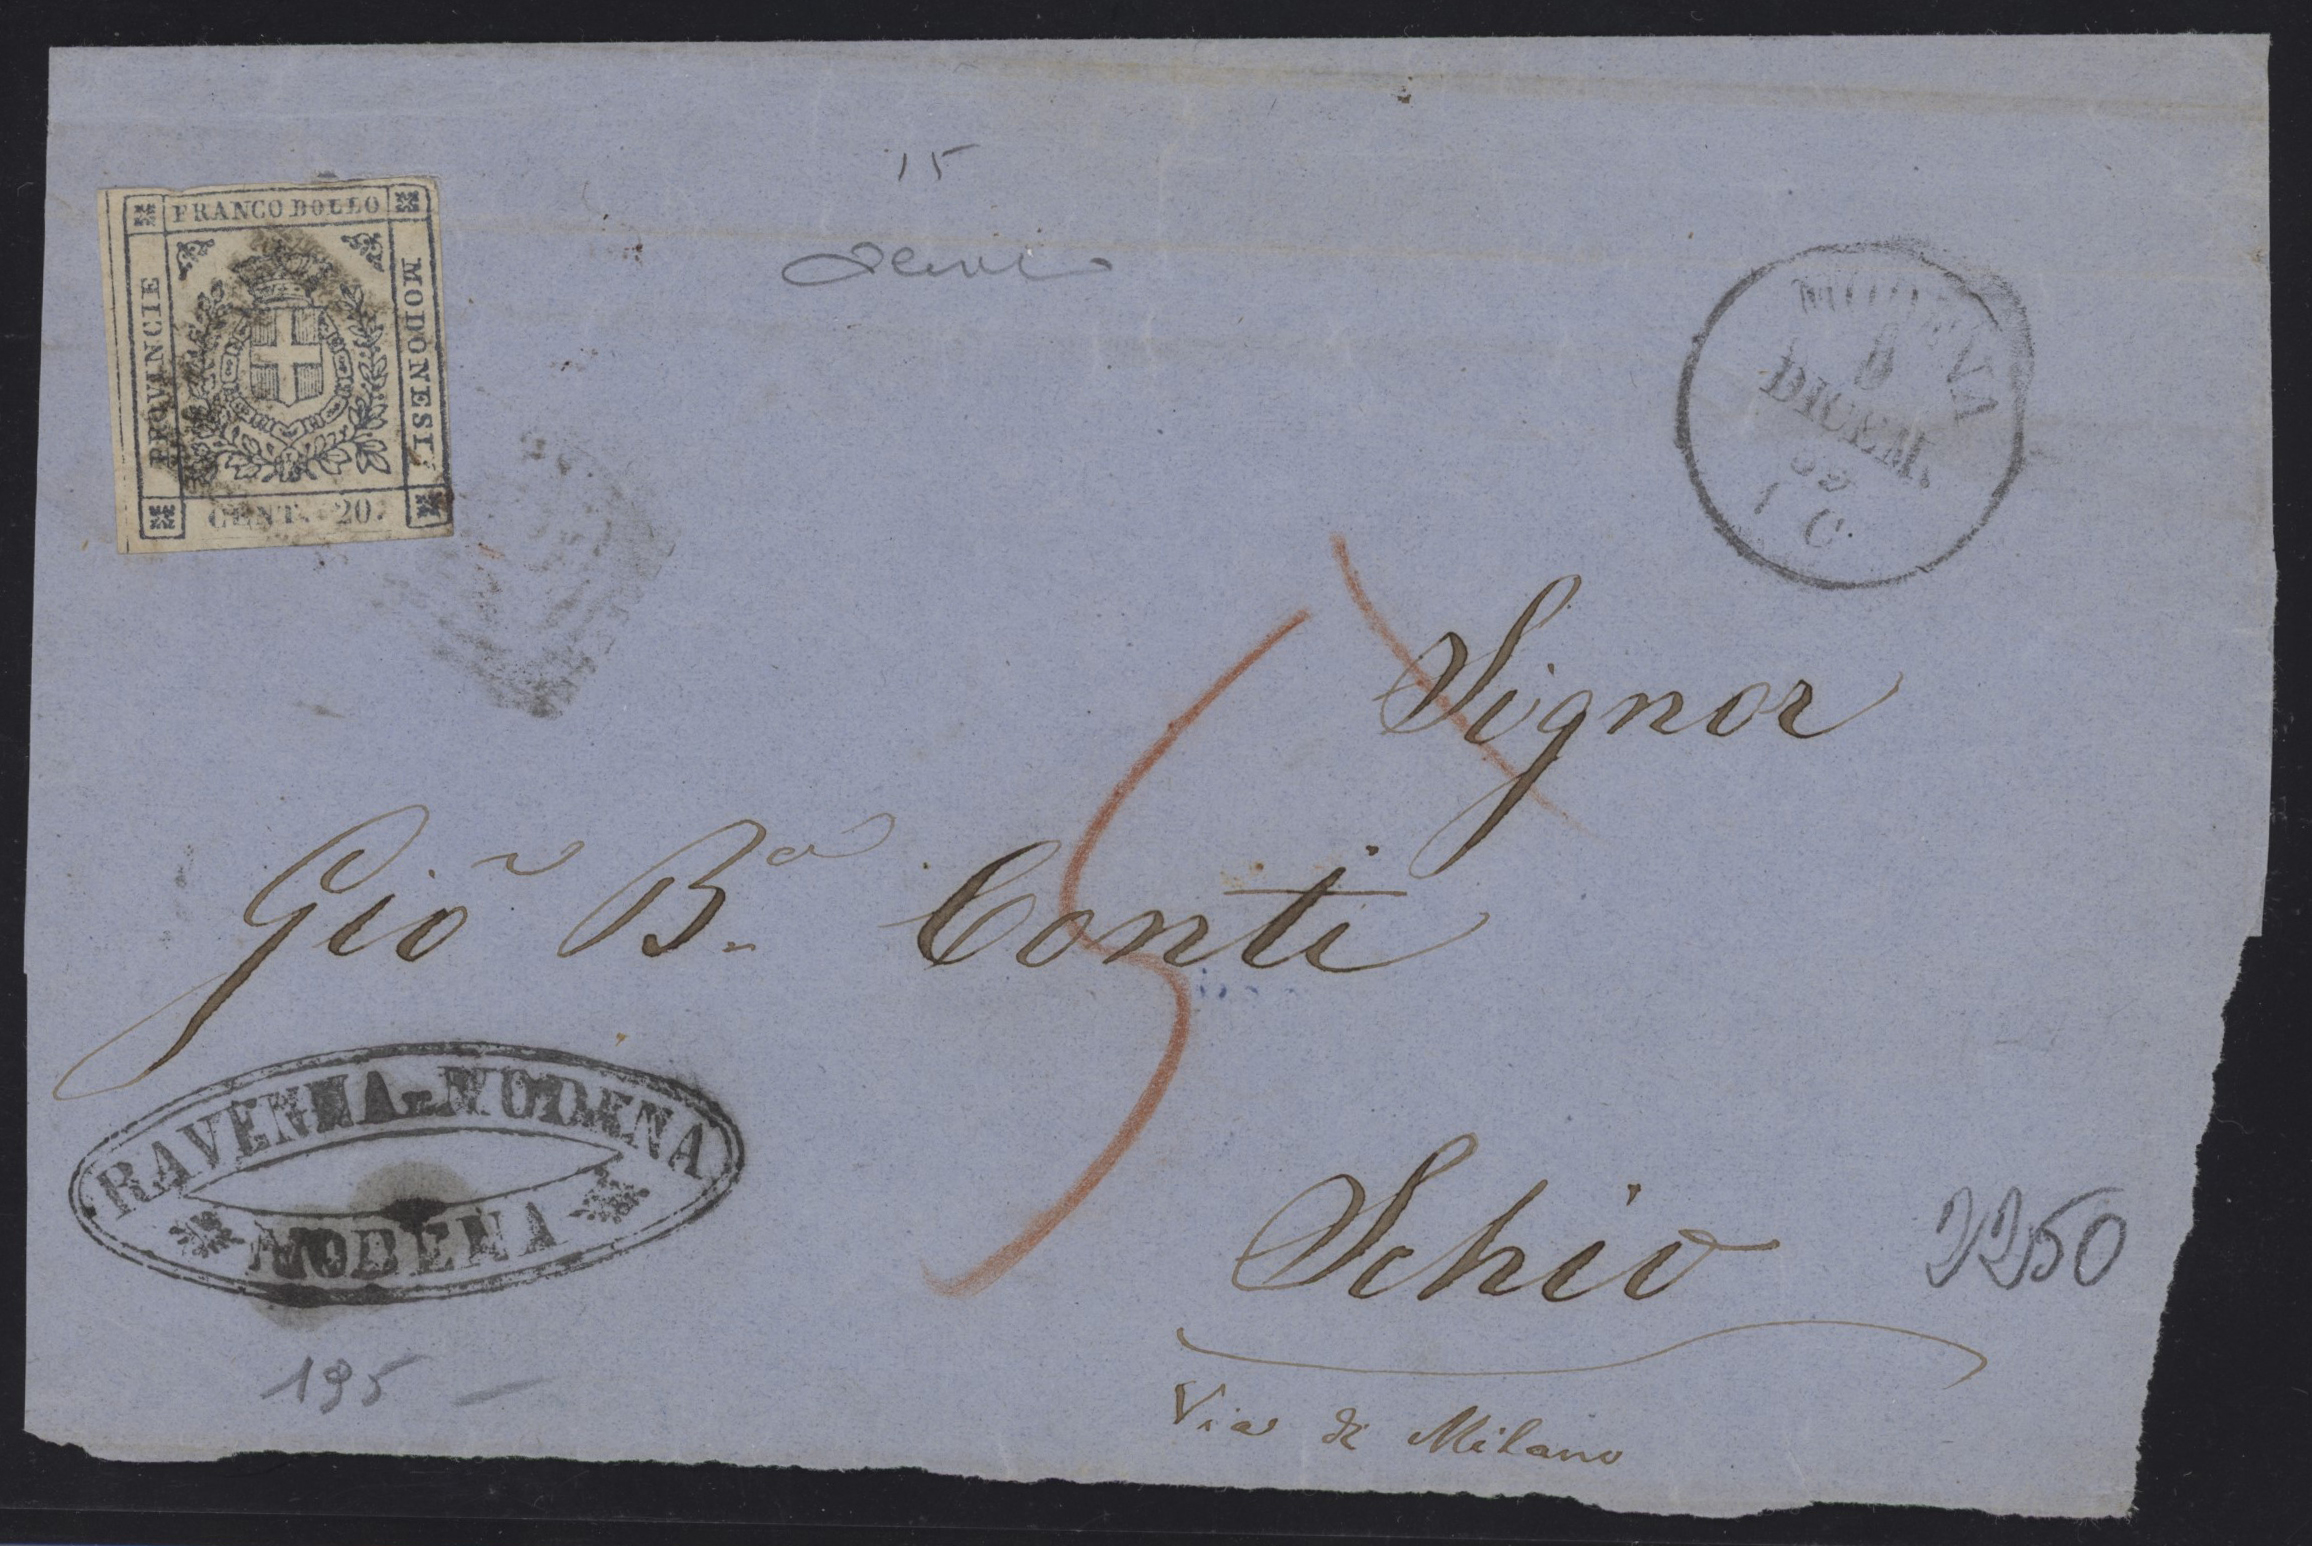 15
FRANCO BOLLO
PROVINCIE
MODONESI
CENT. 20.
MODENA
9
DICEM.
59
1 C.
Signor
Giõ Bª Conti
5
RAVENNA-MODENA
MODENA
Schio
2250
195 —
Via di Milano